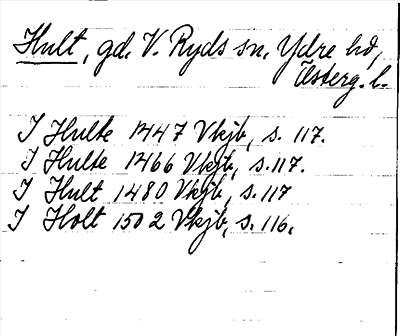 Hult, gd, V. Ryds sn, Ydre hd,
Österg. l.
I Hulte 1447 Vkjb, s. 117.
I Hulte 1466 Vkjb, s. 117.
I Hult 1480 Vkjb, s. 117
I Holt 1502 Vkjb, s. 116.